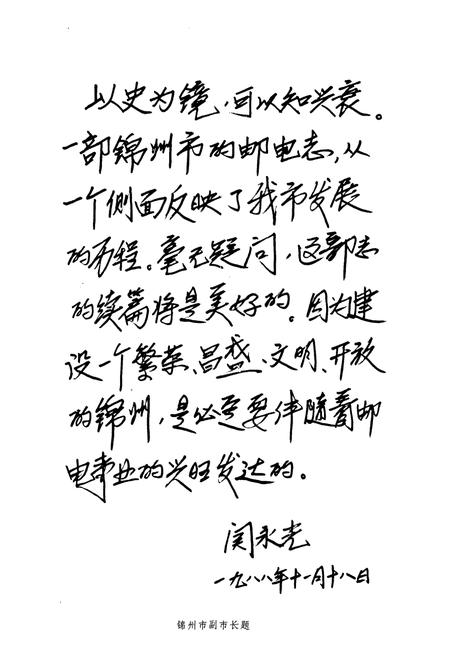 以史为镜，可以知兴衰。
一部锦州市的邮电志，从
一个侧面反映了我市发展
的历程。毫无疑问，这部志
的续篇将是美好的。因为建
设一个繁荣、昌盛、文明、开放
的锦州，是必定要伴随着邮
电事业的兴旺发达的。
闵永光
一九八八年十一月十八日
锦州市副市长题